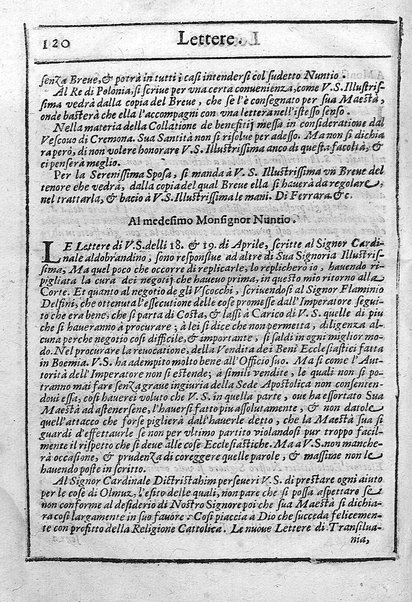 120 Lettere.
senza Breue, & potrà in tutti i casi intendersi col sudetto Nuntio.
Al Re di Polonia, si scriue per una certa conuenienza, come V.S. Illustris-
sima vedrà dalla copia del Breue, che se l'è consegnato per sua Maestà,
onde basterà che ella l'accompagni con vna lettera nell'istesso senso.
Nella materia della Collatione de beneficij messa in consideratione dal
Vescouo di Cremona. Sua Santità non si risolue per adesso. Ma non si dichia
ra però, di non volere honorare V.S. Illustrissima anco di questa facoltà, &
ci penserà meglio.
Per la Serenissima Sposa, si manda à V.S. Illustrissima vn Breue del
tenore che vedrà, dalla copia del qual Breue ella si hauerà da regolare,
nel trattarla, & bacio à V.S. Illustrissima le mani. Di Ferrara &c.
Al medesimo Monsignor Nuntio.
LE Lettere di V.S. delli 18. & 19. di Aprile, scritte al Signor Cardi-
nale aldobrandino, sono responsiue ad altre di sua Signoria Illustris-
sima, Ma quel poco che occorre di replicarle, lo replicherò io, hauendo ri-
pigliata la cura dei negotij che haueuo prima, in questo mio ritorno alla
Corte. Et quanto al negotio de gli Vscocchi, scriuendosi al Signor Flaminio
Delfini, che ottenuta l'essecutione delle cose promesse dall'Imperatore segui-
to che era bene, che si parta di Costà, & lassi à Carico di V.S. quelle di più
che si haueranno à procurare; à lei si dice che non permetta, diligenza al-
cuna perche negotio così difficile, & importante, si saldi in ogni miglior mo-
do. Nel procurare la reuocatione, della Vendita dei Beni Ecclesiastici fatta
in Boemia. V.S. ha adempito molto bene all'Officio suo. Ma sì come l'Au-
torità dell'Imperatore non si estende, à simili vendite, le quali non si po-
tranno mai fare senza graue ingiuria della Sede Apostolica non consenten-
doui essa, così hauerei voluto che V.S. in quella parte, oue ha essortato Sua
Maestà ad astenersene, l'hauersi fatto più assolutamente, & non datole
quell'attacco che forse piglierà dall'hauerle detto, che la Maestà sua si
guardi d'effettuarle se non per vltimo partito violandosi pur troppo facil-
mente il rispetto che si deue alle cose Ecclesiastiche. Ma a V.S. non manche-
rà occasione, & prudenza di correggere quelle parole, & massime non le
hauendo poste in scritto.
Al Signor Cardinale Diëtristahim perseueri V.S. di prestare ogni aiuto
per le cose di Olmuz, l'esito delle quali, non pare che si possa aspettare se
non conforme al desiderio di Nostro Signore poi che sua Maestà si dichia-
ra così largamente in suo fauore: Così piaccia à Dio che succeda felicemen-
te con profitto della Religione Cattolica. Le nuoue Lettere di Transilua-
nia,